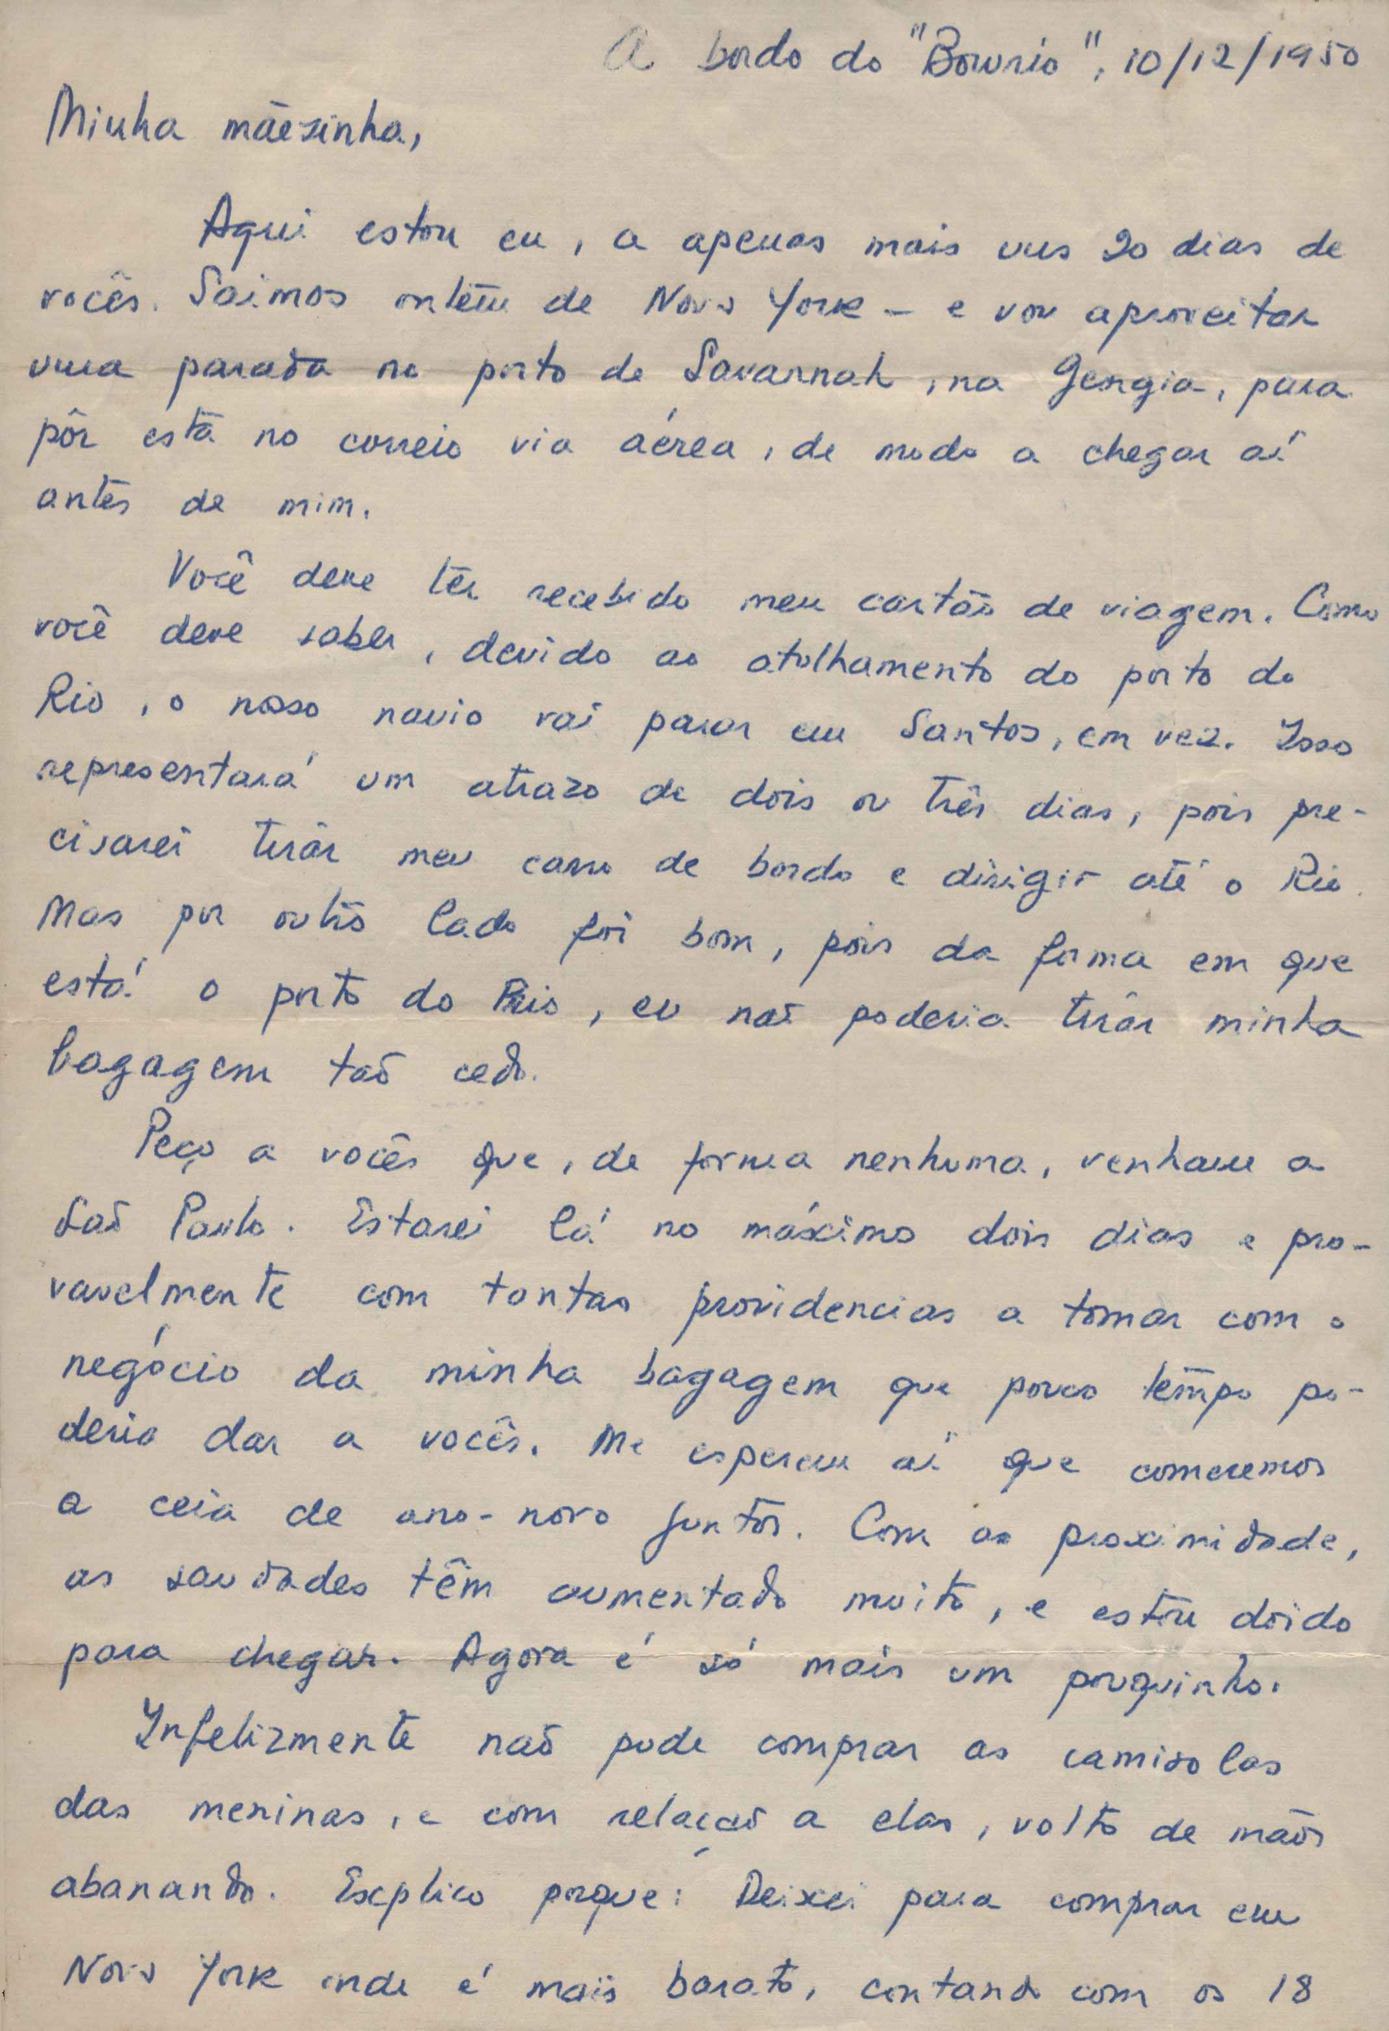 A bordo do "Bowrio", 10/12/1950
Minha mãezinha,
Aqui estou eu, a apenas mais uns 20 dias de
vocês. Saimos ontem de Nova York – e vou aproveitar
uma parada no porto de Savannah, na Georgia, para
pôr esta no correio via aérea, de modo a chegar aí
antes de mim.
Você deve ter recebido meu cartão de viagem. Como
você deve saber, devido ao atulhamento do porto do
Rio, o nosso navio vai parar em Santos, em vez. Isso
representará um atrazo de dois ou três dias, pois pre-
cisarei tirar meu carro de bordo e dirigir até o Rio.
Mas por outro lado foi bom, pois da forma em que
está o porto do Rio, eu não poderia tirar minha
bagagem tão cedo.
Peço a vocês que, de forma nenhuma, venham a
São Paulo. Estarei lá no máximo dois dias e pro-
vavelmente com tantas providencias a tomar com o
negócio da minha bagagem que pouco tempo po-
deria dar a vocês. Me esperem aí que comeremos
a ceia de ano-novo juntos. Com a proximidade,
as saudades têm aumentado muito, e estou doido
para chegar. Agora é só mais um pouquinho.
Infelizmente não pude comprar as camisolas
das meninas, e com relação a elas, volto de mãos
abanando. Explico porque: Deixei para comprar em
Nova York onde é mais barato, contando com os 18